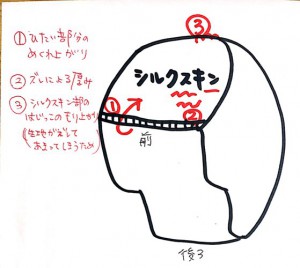 ① ひたい部分の
めくれ上がり
② ズレによる厚み
③ シルクスキン部の
はじっこのもり上がり
(生地が
あまってしまうため)
③
シルクスキン
①
②
前
後ろ